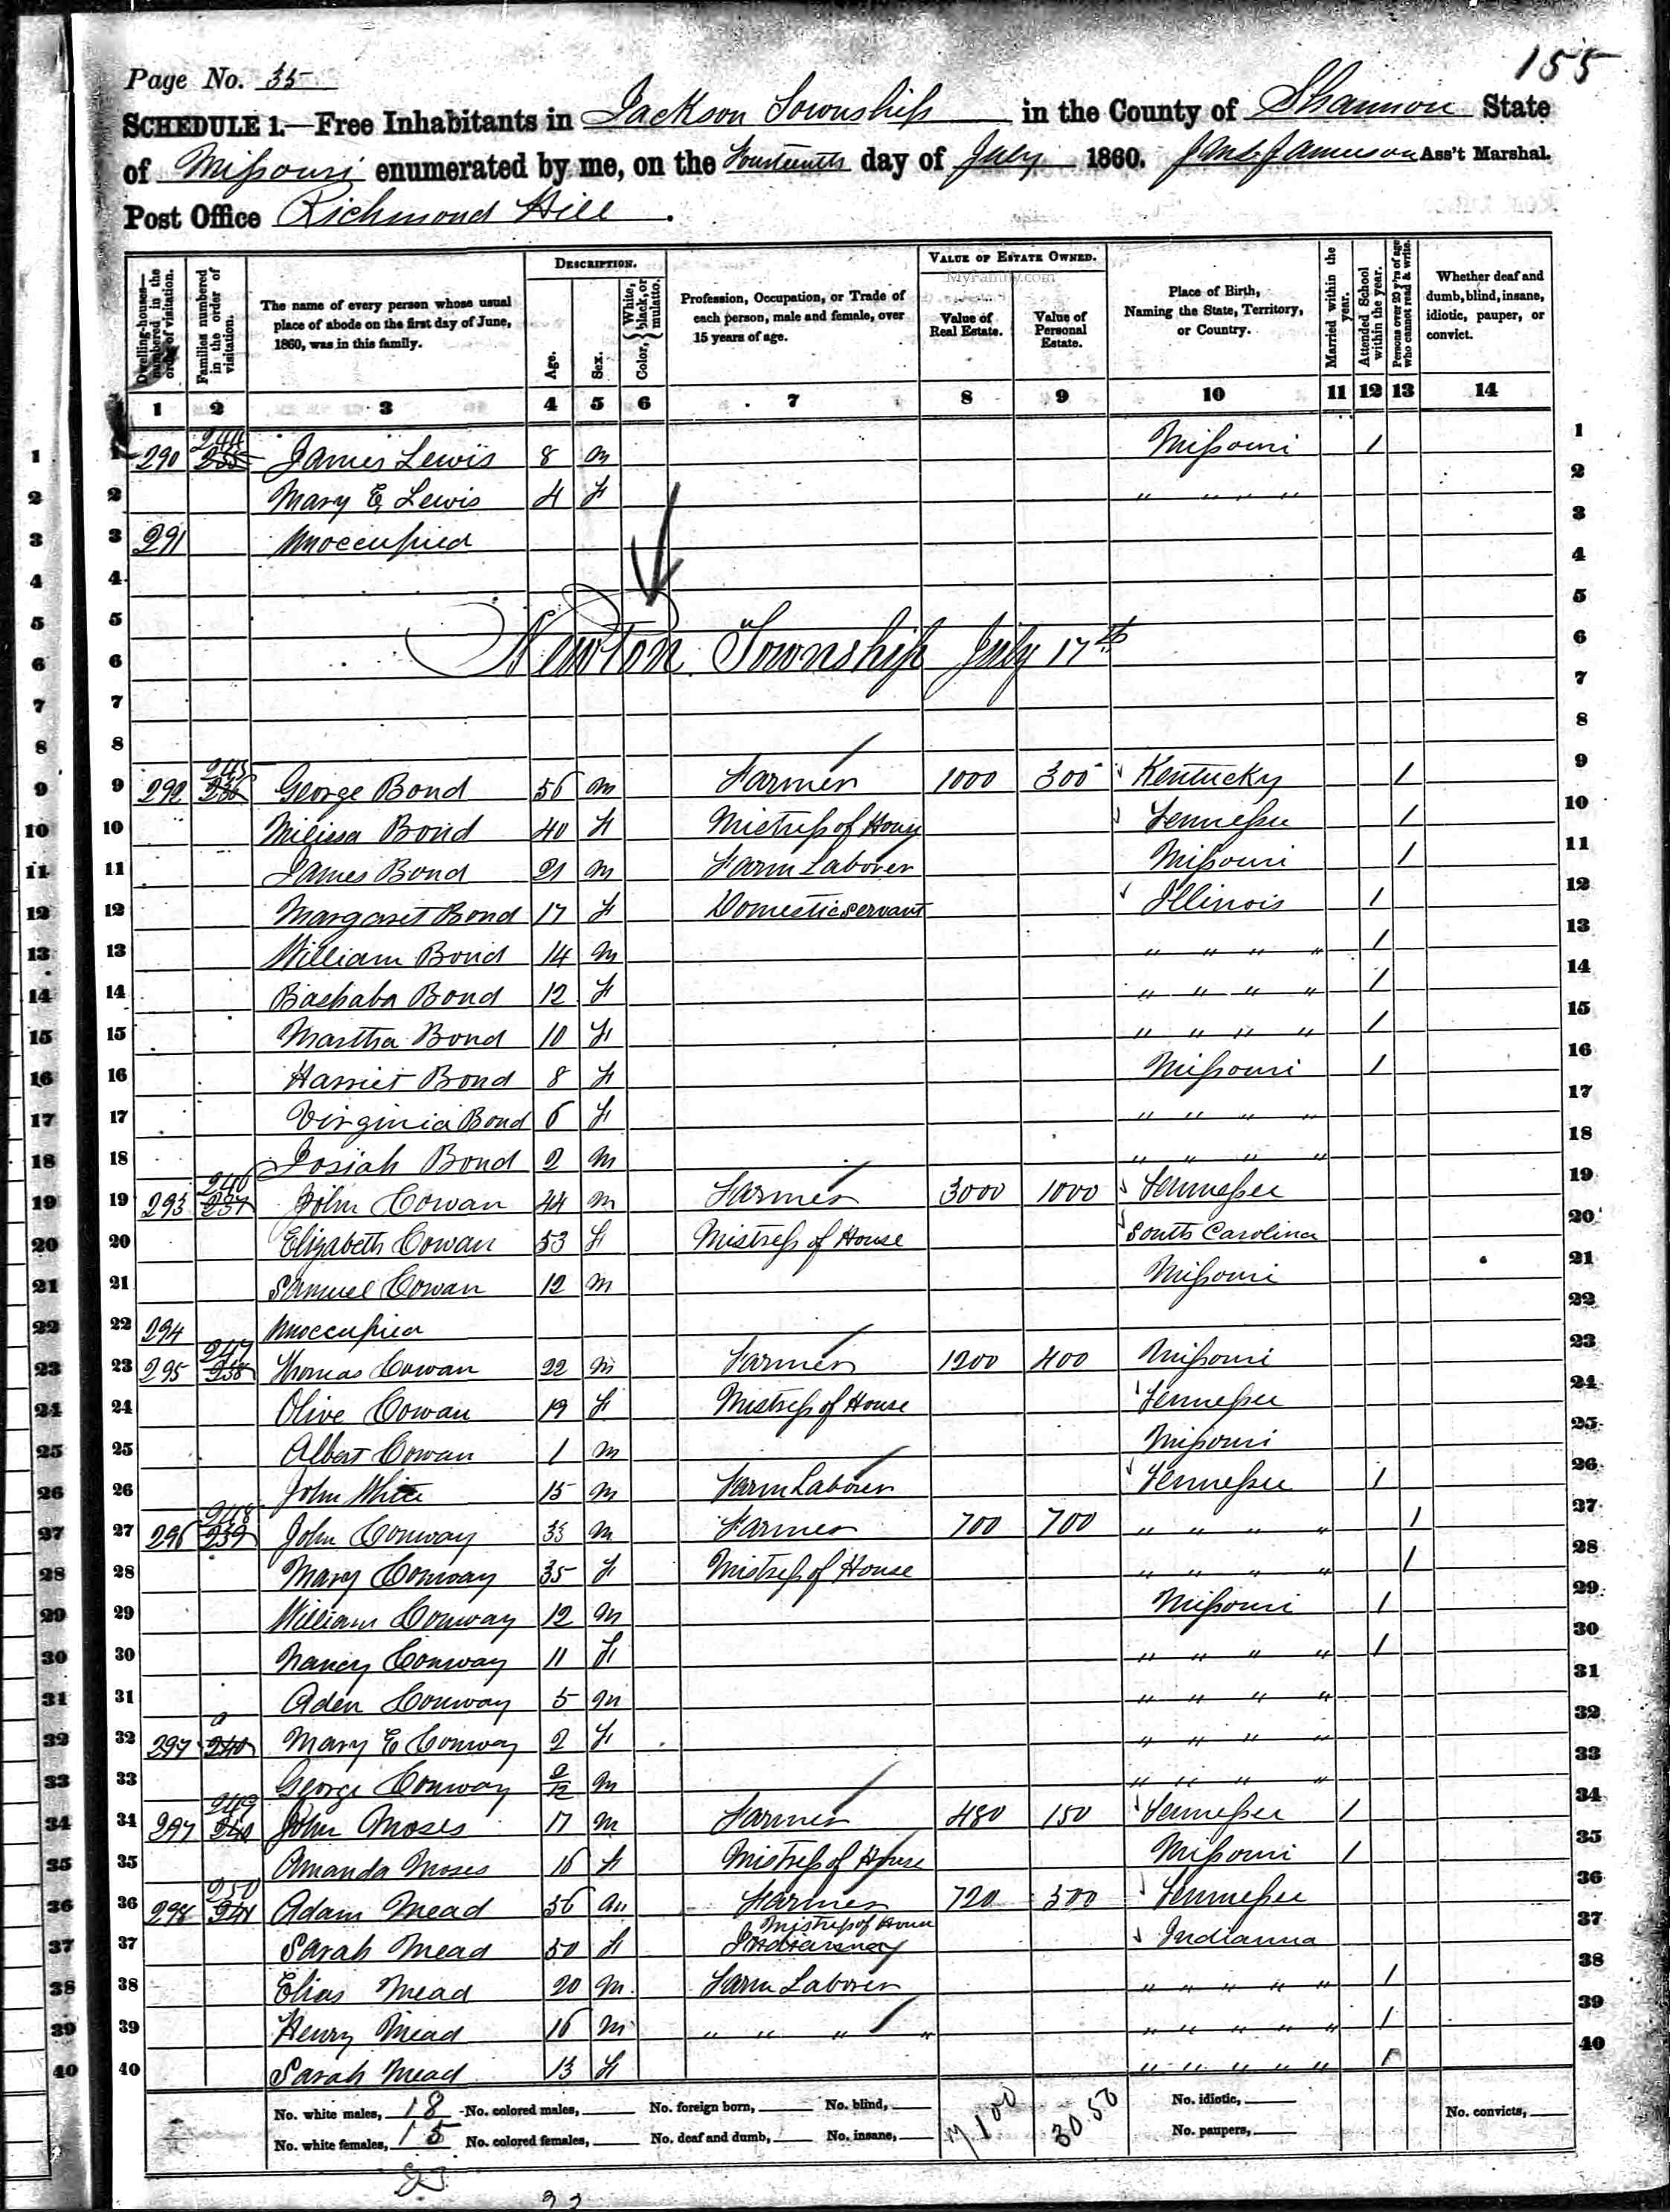 155
Page No. 35
SCHEDULE 1.—Free Inhabitants in Jackson Township in the County of Shannon State
of Missouri enumerated by me, on the fourteenth day of July 1860. Jameson Ass't Marshal.
Post Office Richmond Hill.
MyFamily.com
Dwelling-houses—numbered in the order of visitation.
Families numbered in the order of visitation.
The name of every person whose usual place of abode on the first day of June, 1860, was in this family.
DESCRIPTION.
Age.
Sex.
Color, { White, black, or mulatto.
Profession, Occupation, or Trade of each person, male and female, over 15 years of age.
VALUE OF ESTATE OWNED.
Value of Real Estate.
Value of Personal Estate.
Place of Birth, Naming the State, Territory, or Country.
Married within the year.
Attended School within the year.
Persons over 20 y'rs of age who cannot read & write.
Whether deaf and dumb, blind, insane, idiotic, pauper, or convict.
1 2 3 4 5 6 7 8 9 10 11 12 13 14
1 1 290 244 235 James Lewis 8 m Missouri / 1
2 2 Mary E Lewis 4 f " " " " 2
3 3 291 Unoccupied 3
4 4 4
5 5 5
6 6 Newton Township July 17th 6
7 7 7
8 8 8
9 9 292 245 236 George Bond 56 m Farmer 1000 300 Kentucky / 9
10 10 Milissa Bond 40 f Mistress of House Tennessee / 10
11 11 James Bond 21 m Farm Laborer Missouri / 11
12 12 Margaret Bond 17 f Domestic servant Illinois / 12
13 13 William Bond 14 m " " " " / 13
14 14 Bashaba Bond 12 f " " " " / 14
15 15 Martha Bond 10 f " " " " / 15
16 16 Harriet Bond 8 f Missouri / 16
17 17 Virginia Bond 6 f " " " " 17
18 18 Josiah Bond 2 m " " " " 18
19 19 293 246 237 John Cowan 44 m Farmer 3000 1000 Tennessee 19
20 20 Elizabeth Cowan 53 f Mistress of House South Carolina 20
21 21 Samuel Cowan 12 m Missouri 21
22 22 294 Unoccupied 22
23 23 295 247 238 Thomas Cowan 22 m Farmer 1200 400 Missouri 23
24 24 Olive Cowan 19 f Mistress of House Tennessee 24
25 25 Albert Cowan 1 m Missouri 25
26 26 John White 15 m Farm Laborer Tennessee / 26
27 27 296 248 239 John Conway 33 m Farmer 700 700 " " " " / 27
28 28 Mary Conway 35 f Mistress of House " " " " / 28
29 29 William Conway 12 m Missouri / 29
30 30 Nancy Conway 11 f " " " " / 30
31 31 Aden Conway 5 m " " " " 31
32 32 297 240 Mary E Conway 2 f " " " " 32
33 33 George Conway m " " " " 33
34 34 297 249 240 John Moses 17 m Farmer 480 150 Tennessee / 34
35 35 Amanda Moses 16 f Mistress of House Missouri / 35
36 36 298 250 241 Adam Mead 56 m Farmer 720 500 Tennessee 36
37 37 Sarah Mead 50 f Mistress of House Indianna 37
38 38 Elias Mead 20 m Farm Laborer " " " " " / 38
39 39 Henry Mead 16 m " " " " " " " " " / 39
40 40 Sarah Mead 13 f " " " " " / 40
No. white males, 18 No. colored males, No. foreign born, No. blind, 7100 3050 No. idiotic,
No. white females, 15 No. colored females, No. deaf and dumb, No. insane, No. paupers, No. convicts,
33